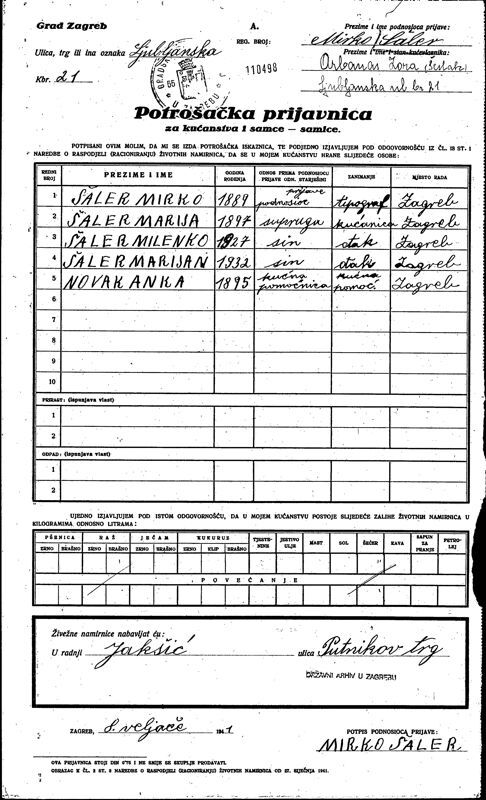 Grad Zagreb
A.
Prezime i ime podnosioca prijave:
Mirko Šaler
Ulica, trg ili ina oznaka Ljubljanska
REG. BROJ:
Prezime i ime i stan kućevlasnika:
Kbr. 21
110498
Orbanas Zora
Ljubljanska ul br 21
Potrošačka prijavnica
za kućanstva i samce — samice.
POTPISANI OVIM MOLIM, DA MI SE IZDA POTROŠAČKA ISKAZNICA, TE PODJEDNO IZJAVLJUJEM POD ODGOVORNOŠĆU IZ ČL. 18 ST. 1
NAREDBE O RASPODJELI (RACIONIRANJU) ŽIVOTNIH NAMIRNICA, DA SE U MOJEM KUĆANSTVU HRANE SLIJEDEĆE OSOBE:
REDNI BROJ PREZIME I IME GODINA ROĐENJA ODNOS PREMA PODNOSIOCU PRIJAVE ODN. STARJEŠINI ZANIMANJE MJESTO RADA
1 ŠALER MIRKO 1889 podnosioc prijave tipograf Zagreb
2 ŠALER MARIJA 1897 supruga kućanica Zagreb
3 ŠALER MILENKO 1927 sin đak Zagreb
4 ŠALER MARIJAN 1932 sin đak Zagreb
5 NOVAK ANKA 1895 kućna pomoćnica kućna pomoć Zagreb
6
7
8
9
10
PRIRAST: (ispunjava vlast)
1
2
OTPAD: (ispunjava vlast)
1
2
UJEDNO IZJAVLJUJEM POD ISTOM ODGOVORNOŠĆU, DA U MOJEM KUĆANSTVU POSTOJE SLIJEDEĆE ZALIHE ŽIVOTNIH NAMIRNICA U
KILOGRAMIMA ODNOSNO LITRAMA:
PŠENICA RAŽ JEČAM KUKURUZ TJESTENINE JESTIVO ULJE MAST SOL ŠEĆER KAVA SAPUN ZA PRANJE PETROLEJ
ZRNO BRAŠNO ZRNO BRAŠNO ZRNO BRAŠNO ZRNO KLIP BRAŠNO
POVEĆANJE
Živežne namirnice nabavljat ću:
U radnji Jakšić ulica Putnikov trg
DRŽAVNI ARHIV U ZAGREBU
ZAGREB, 8. veljače 1941
POTPIS PODNOSIOCA PRIJAVE:
MIRKO ŠALER
OVA PRIJAVNICA STOJI DIN 0'75 I NE SMIJE SE SKUPLJE PRODAVATI.
OBRAZAC K ČL. 2 ST. 2 NAREDBE O RASPODJELI (RACIONIRANJU) ŽIVOTNIH NAMIRNICA OD 27. SIJEČNJA 1941.